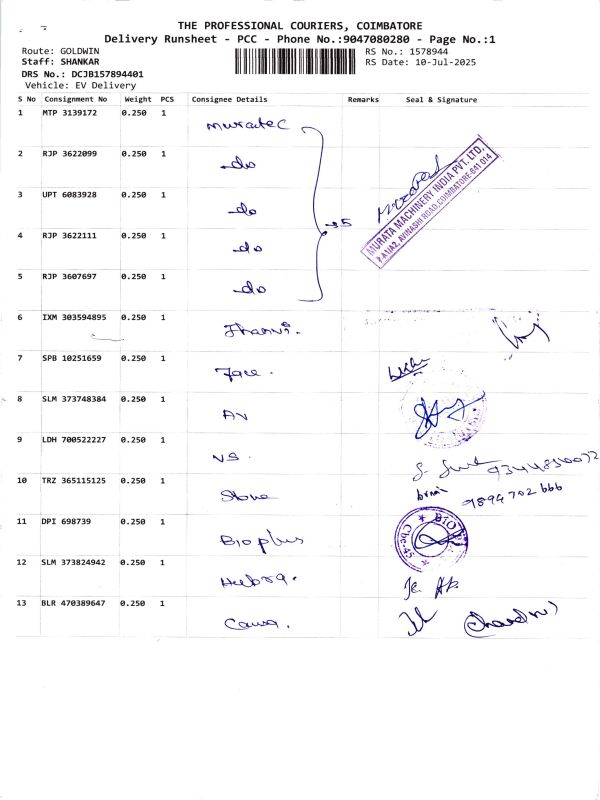 THE PROFESSIONAL COURIERS, COIMBATORE
Delivery Runsheet - PCC - Phone No.:9047080280 - Page No.:1
Route: GOLDWIN
RS No.: 1578944
Staff: SHANKAR
RS Date: 10-Jul-2025
DRS No.: DCJB157894401
Vehicle: EV Delivery
S No Consignment No Weight PCS Consignee Details Remarks Seal & Signature
1 MTP 3139172 0.250 1 muratec
2 RJP 3622099 0.250 1 -do
3 UPT 6083928 0.250 1 -do
→5
MURATA MACHINERY INDIA PVT. LTD.
AVINASH ROAD, COIMBATORE-641 014
4 RJP 3622111 0.250 1 -do
5 RJP 3607697 0.250 1 -do
6 IXM 303594895 0.250 1
7 SPB 10251659 0.250 1 Face.
8 SLM 373748384 0.250 1 AV
9 LDH 700522227 0.250 1 VS.
10 TRZ 365115125 0.250 1 Stone
9894702666
11 DPI 698739 0.250 1 Bioplus
12 SLM 373824942 0.250 1
13 BLR 470389647 0.250 1